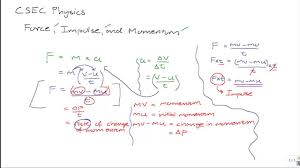 CSEC Physics
Force, Impulse, and Momentum
F = m x a
F = m (v-u)/t
[F = mv - mu/t]
= ΔP/t
= rate of change of momentum
a = ΔV/Δt
= (v-u)/t
mv = momentum
mu = initial momentum
mv-mu = change in momentum
= ΔP
F = mv - mu/t
Fxt = (mv-mu)/t x t
Fxt = mv-mu
Impulse